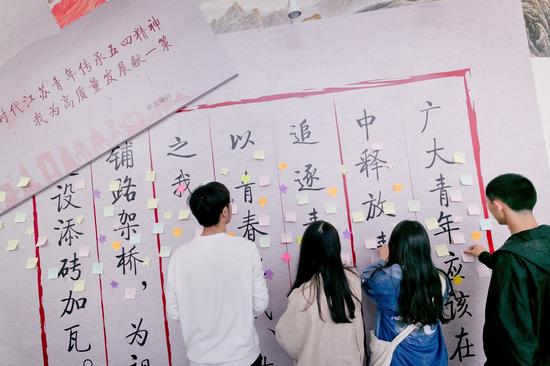 时代江苏青年传承五四精神
我为高质量发展献一策
邮政编码
广大青年应该在
中释放
追逐
以青春
之我
铺路架桥，为祖
设添砖加瓦。